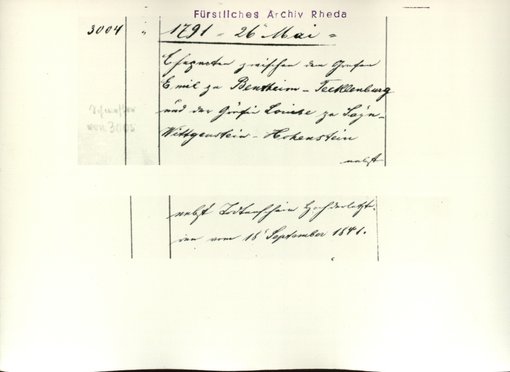 Fürstliches Archiv Rheda
3004 " 1791 - 26 Mai =
Ehepacten zwischen dem Grafen
Emil zu Bentheim - Tecklenburg
und der Gräfin Louise zu Sayn-
Wittgenstein - Hohenstein
von 3005
nebst
nebst Todtenschein Hochderletzt.
vom 18 September 1841.